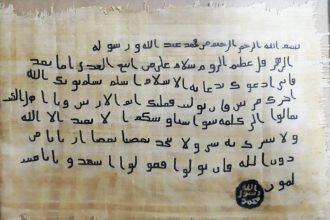 بسم الله الرحمن الرحيم من محمد عبد الله و رسوله
الى هرقل عظيم الروم سلام على من اتبع الهدى اما بعد
فانى ادعوك بدعاية الاسلام اسلم تسلم يوتك الله
اجرك مرتين فان توليت فعليك اثم الاريسين و يا اهل الكتب
تعالوا الى كلمة سوا بيننا و بينكم الا نعبد الا الله
ولا نشرك به شيا ولا يتخذ بعضنا بعضا اربابا من
دون الله فان تولوا فقولوا اشهدوا بانا مس
لمون
الله
رسول
محمد